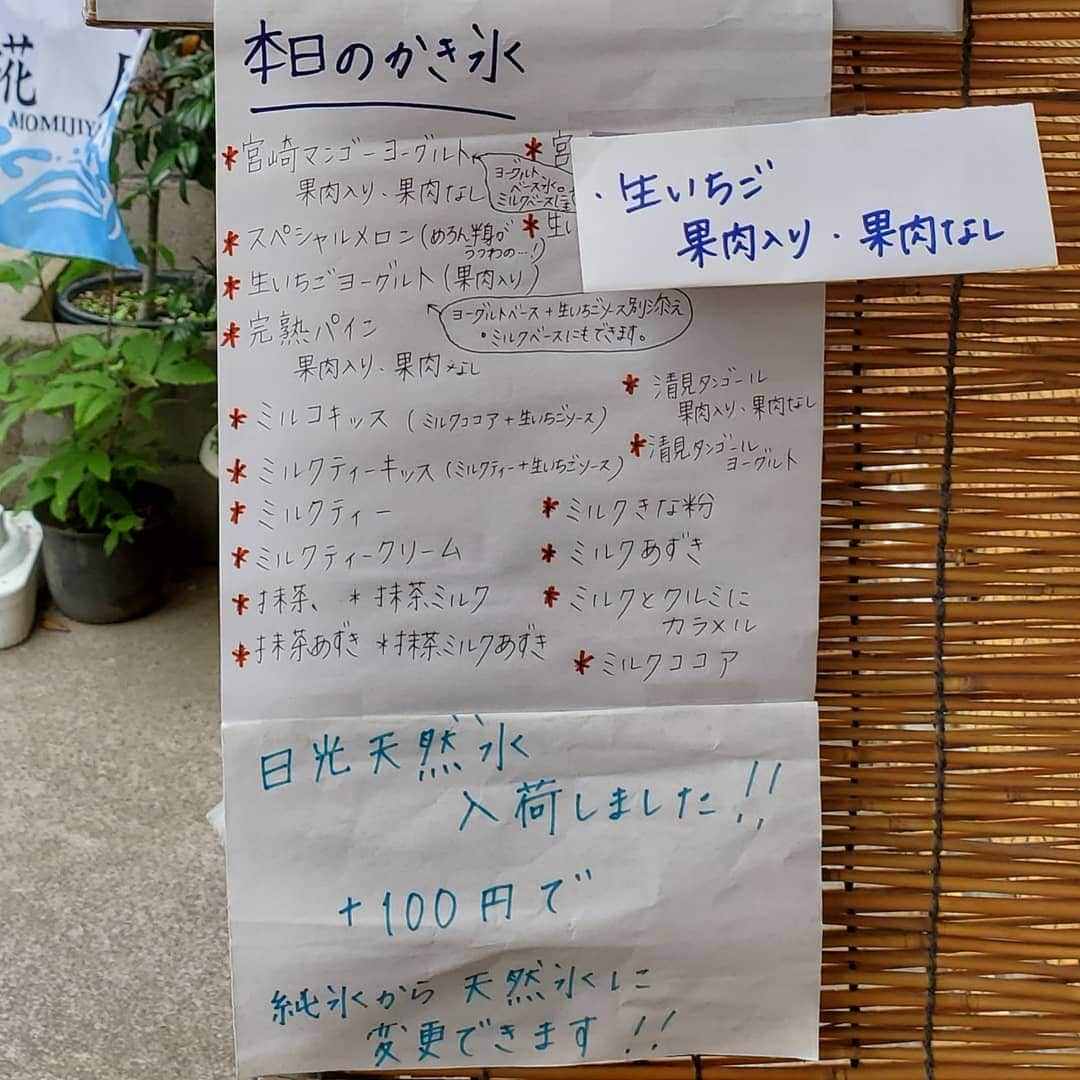 本日のかき氷
*宮崎マンゴーヨーグルト
果肉入り・果肉なし
ヨーグルト
ベース氷。
ミルクベースに
*宮
*生い
・生いちご
果肉入り・果肉なし
*スペシャルメロン(めろん半身が
うつわの…!)
*生いちごヨーグルト(果肉入り)
ヨーグルトベース+生いちごソース別添え
・ミルクベースにもできます。
*完熟パイン
果肉入り・果肉なし
*清見タンゴール
果肉入り・果肉なし
*ミルコキッス(ミルクココア+生いちごソース)
*清見タンゴール
ヨーグルト
*ミルクティーキッス(ミルクティー+生いちごソース)
*ミルクティー
*ミルクきな粉
*ミルクティークリーム
*ミルクあずき
*抹茶、*抹茶ミルク
*ミルクとクルミに
カラメル
*抹茶あずき *抹茶ミルクあずき
*ミルクココア
日光天然氷
入荷しました!!
+100円で
純氷から天然氷に
変更できます!!
花
MOMIJIY